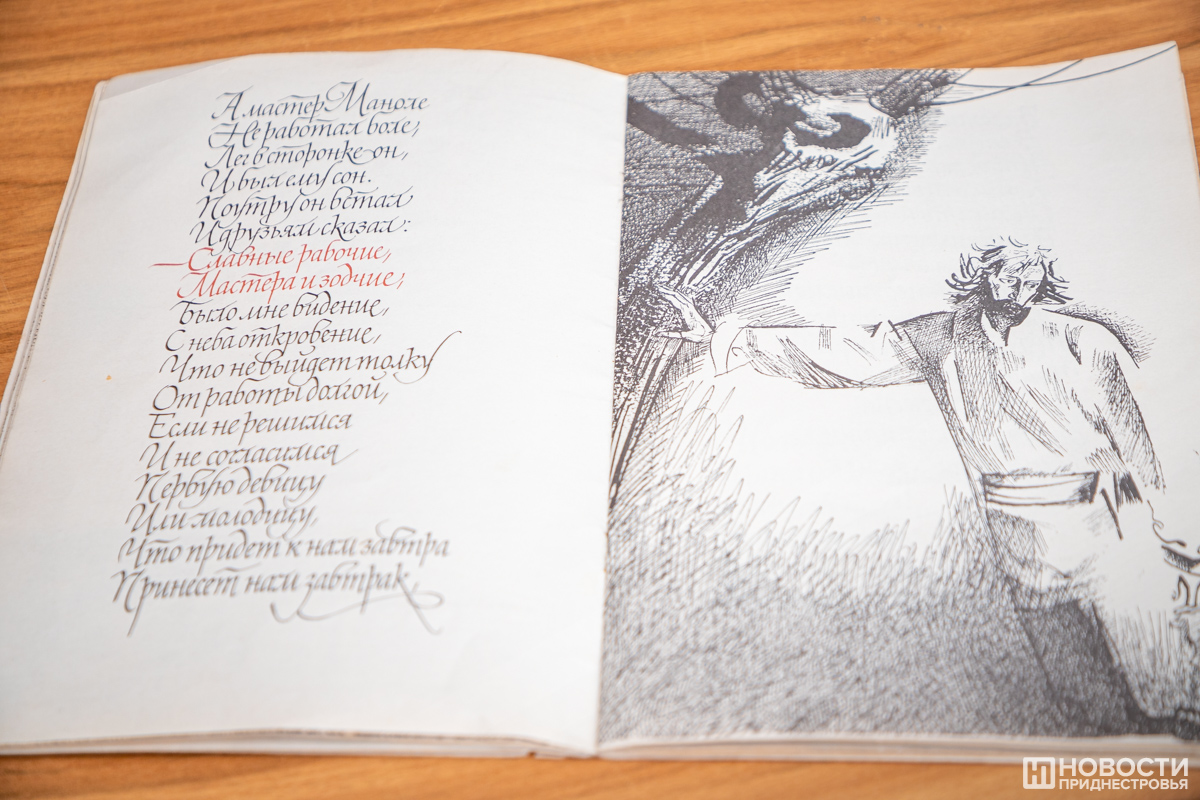 А мастер Маноле
Не работал боле;
Лег в сторонке он,
И был ему сон.
Поутру он встал
И друзьям сказал:
— Славные рабочие,
Мастера и зодчие;
Было мне видение,
С неба откровение,
Что не выйдет толку
От работы долгой,
Если не решимся
И не согласимся
Первую девицу
Или молодицу,
Что придет к нам завтра
Принесет нам завтрак,
НОВОСТИ
ПРИДНЕСТРОВЬЯ